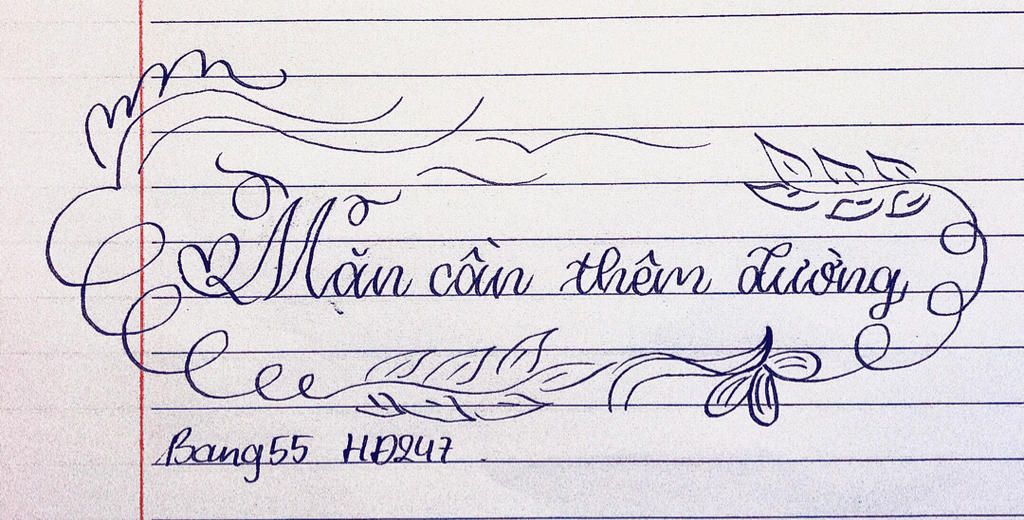 Măn cần thêm đường
Bang55 HĐ247